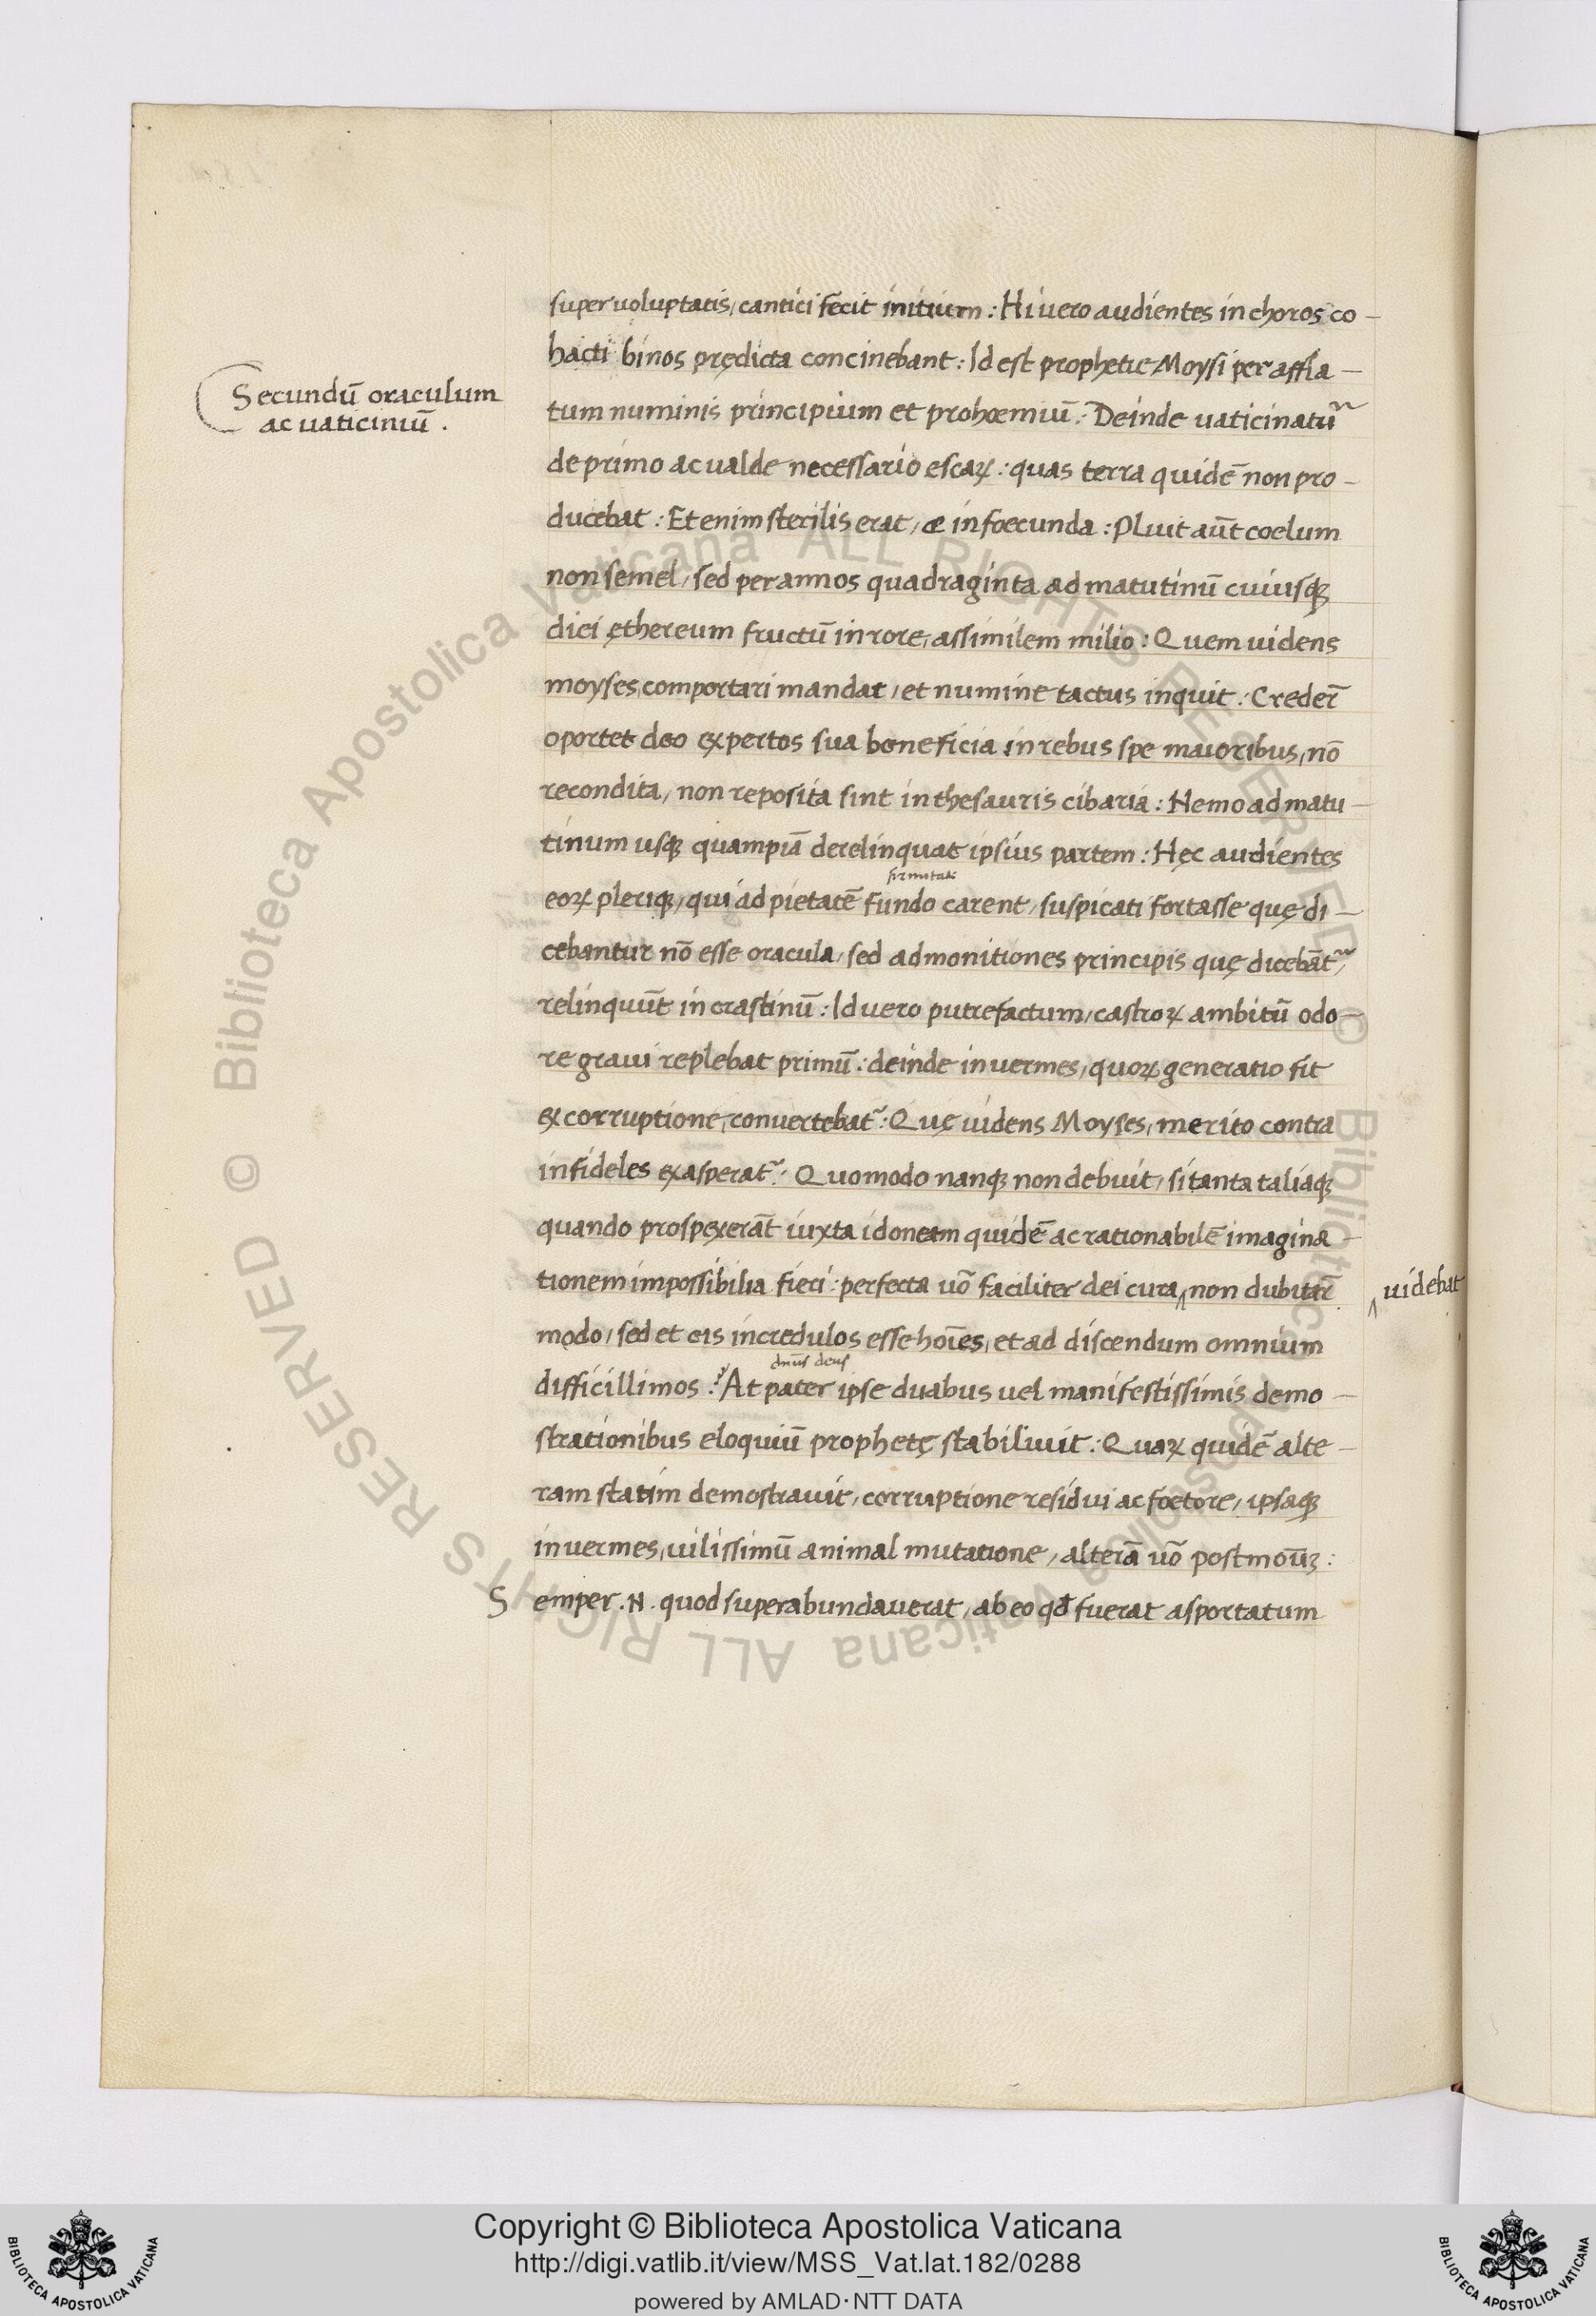 super uoluptatis, cantici fecit initium: Hi uero audientes in choros co-
hacti binos prędicta concinebant: Id est prophetie Moysi per affla-
Secundū oraculum
ac uaticiniū.
tum numinis principium et prohœmiū: Deinde uaticinatur͂
de primo ac ualde necessario escaꝝ: quas terra quidē non pro-
ducebat: Etenim sterilis erat, æ infoecunda: Pluit aūt coelum
non semel, sed per annos quadraginta ad matutinū cuiusqꝫ
diei ętheręum fructū in rore, assimilem milio: Quem uidens
moyses, comportari mandat, et numine tactus inquit: Creder̄
oportet deo expertos sua beneficia in rebus spe maioribus, nō
recondita, non reposita sint in thesauris cibaria: Nemo ad matu-
tinum usqꝫ quampiā derelinquat ipsius partem: Hęc audientes
firmitatis
eoꝝ pleriqꝫ, qui ad pietatē fundo carent, suspicati fortasse quę di-
cebantur nō esse oracula, sed admonitiones principis quę dicebāt͂,
relinquūt in crastinū: Id uero putrefactum, castroꝝ ambitū odo-
re graui replebat primū: deinde in uermes, quoꝝ generatio fit
ex corruptione, conuertebat͂: Quę uidens Moyses, merito contra
infideles exasperat͂: Quomodo nanqꝫ non debuit, si tanta taliaqꝫ
quando prospexerāt iuxta idoneam quidē ac rationabilē imagina-
tionem impossibilia fieri: perfecta uō faciliter dei cura ‸ non dubitar̄
‸ uidebat
modo, sed et eis incredulos esse hoīes, et ad discendum omnium
dn̄s deus
difficillimos: At pater ipse duabus uel manifestissimis demo-
strationibus eloquiū prophetę stabiliuit: Quaꝝ quidē alte-
ram statim demostrauit, corruptione residui ac foetore, ipsaqꝫ
in uermes, uilissimū animal mutatione, alterā uō postmoūꝫ:
Semper .N. quod superabundauerat, ab eo qđ fuerat asportatum
Copyright © Biblioteca Apostolica Vaticana
http://digi.vatlib.it/view/MSS_Vat.lat.182/0288
powered by AMLAD·NTT DATA
BIBLIOTECA APOSTOLICA VATICANA
BIBLIOTECA APOSTOLICA VATICANA
© Biblioteca Apostolica Vaticana ALL RIGHTS RESERVED © Biblioteca Apostolica Vaticana ALL RIGHTS RESERVED